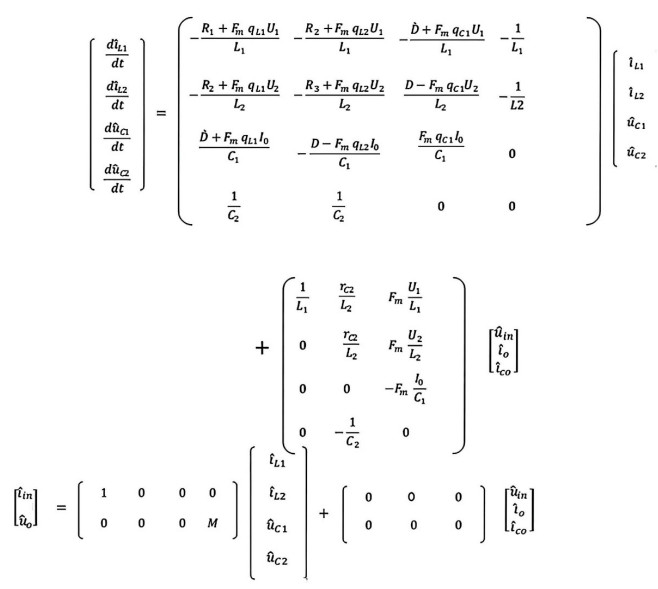 dî_L1/dt
dî_L2/dt
dû_C1/dt
dû_C2/dt
=
−(R_1 + F_m q_L1 U_1)/L_1  −(R_2 + F_m q_L2 U_1)/L_1  −(D̀ + F_m q_C1 U_1)/L_1  −1/L_1
−(R_2 + F_m q_L1 U_2)/L_2  −(R_3 + F_m q_L2 U_2)/L_2  (D − F_m q_C1 U_2)/L_2  −1/L2
(D̀ + F_m q_L1 I_0)/C_1  −(D − F_m q_L2 I_0)/C_1  (F_m q_C1 I_0)/C_1  0
1/C_2  1/C_2  0  0
î_L1
î_L2
û_C1
û_C2
+
1/L_1  r_C2/L_2  F_m U_1/L_1
0  r_C2/L_2  F_m U_2/L_2
0  0  −F_m I_0/C_1
0  −1/C_2  0
û_in
î_o
î_co
î_in
û_o
=
1  0  0  0
0  0  0  M
î_L1
î_L2
û_C1
û_C2
+
0  0  0
0  0  0
û_in
î_o
î_co